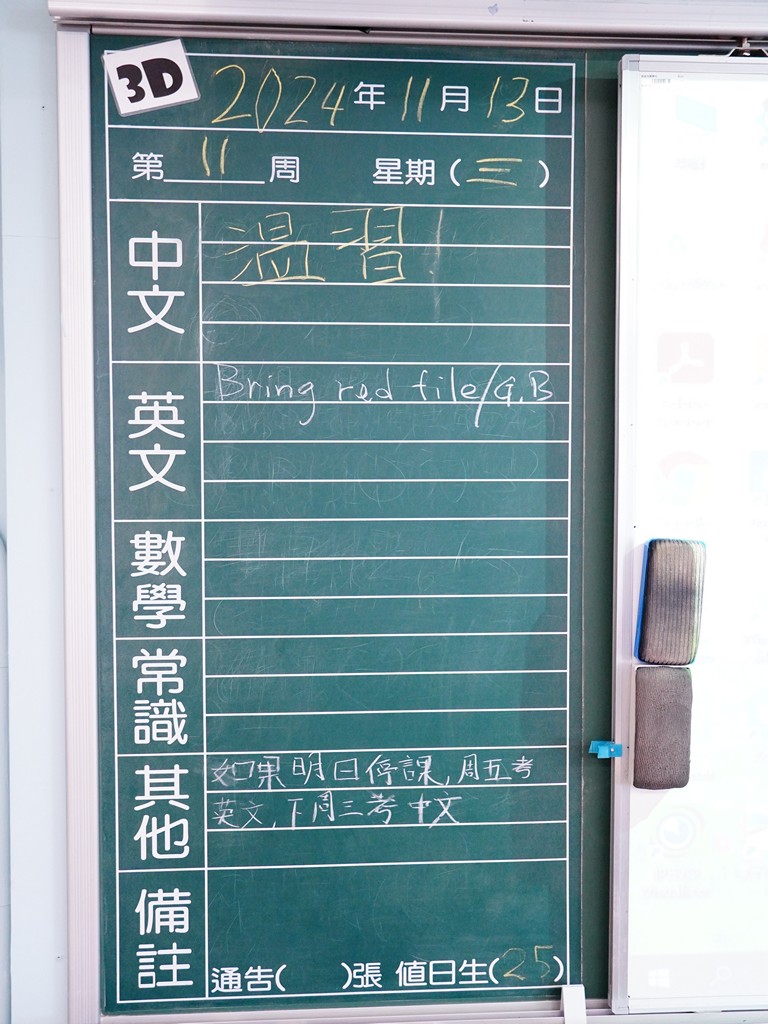 3D
2024年11月13日
第11周 星期(三)
中文
溫習
英文
Bring red file/G.B
數學
常識
其他
如果明日停課,周五考
英文,下周三考中文
備註
通告( )張 值日生(25)